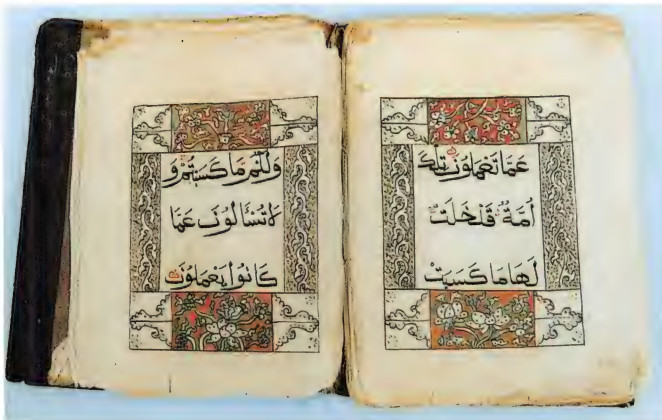 عَمَّا تَعْمَلُونَ تِلْكَ
أُمَّةٌ قَدْ خَلَتْ
لَهَا مَا كَسَبَتْ
وَلَكُمْ مَا كَسَبْتُمْ وَ
لَا تُسْأَلُونَ عَمَّا
كَانُوا يَعْمَلُونَ